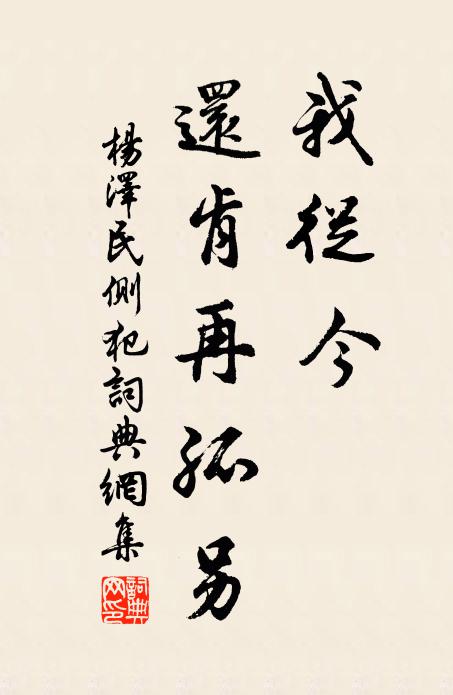 我從今
還肯再孤另
楊澤民側犯詞典網集
詞典網印